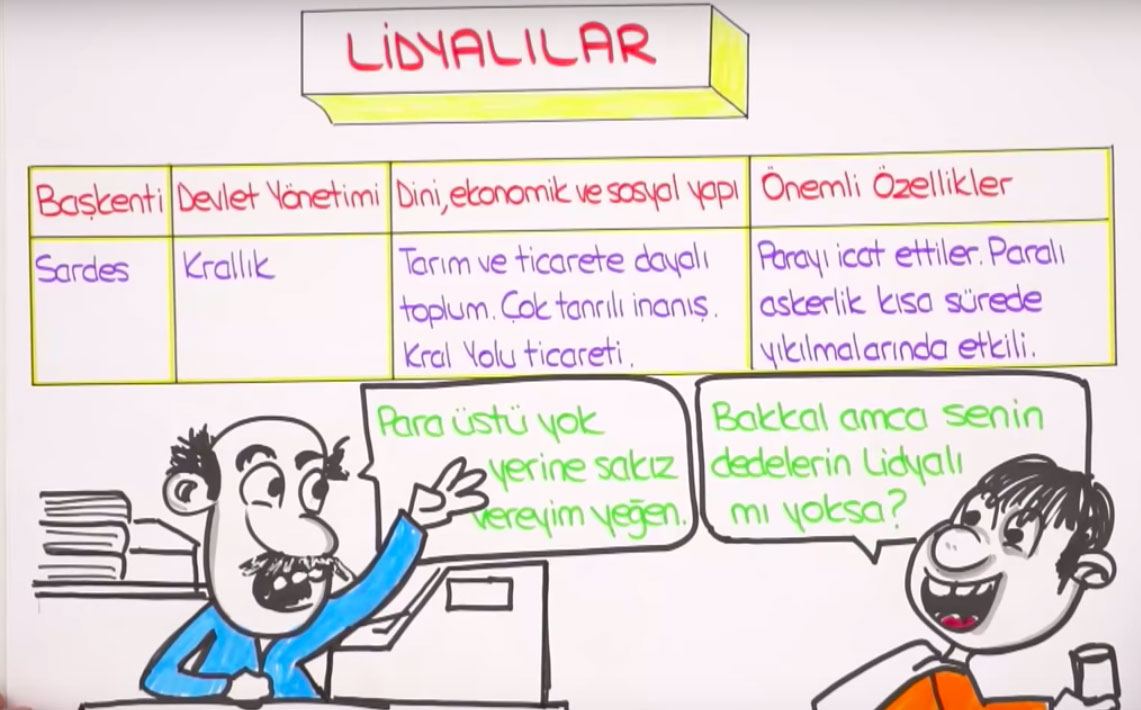 LİDYALILAR
Başkenti
Devlet Yönetimi
Dini, ekonomik ve sosyal yapı
Önemli Özellikler
Sardes
Krallık
Tarım ve ticarete dayalı
toplum. Çok tanrılı inanış.
Kral Yolu ticareti.
Parayı icat ettiler. Paralı
askerlik kısa sürede
yıkılmalarında etkili.
Para üstü yok
yerine sakız
vereyim yeğen.
Bakkal amca senin
dedelerin Lidyalı
mı yoksa?